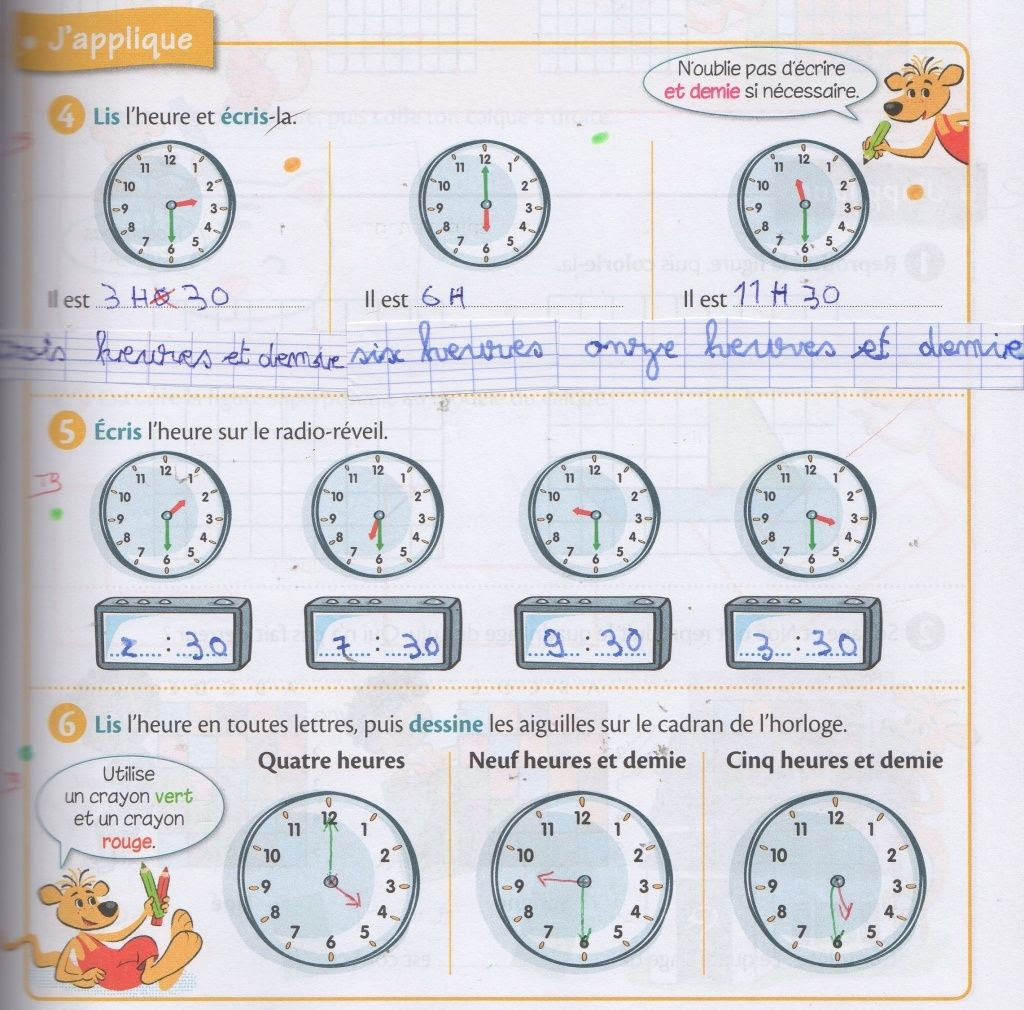 J'applique
N'oublie pas d'écrire
et demie si nécessaire.
4 Lis l'heure et écris-la.
12 1 2 3 4 5 6 7 8 9 10 11
12 1 2 3 4 5 6 7 8 9 10 11
12 1 2 3 4 5 6 7 8 9 10 11
Il est 3 H 30
Il est 6 H
Il est 11 H 30
heures et demie
six heures
onze heures et demie
5 Écris l'heure sur le radio-réveil.
TB
12 1 2 3 4 5 6 7 8 9 10 11
12 1 2 3 4 5 6 7 8 9 10 11
12 1 2 3 4 5 6 7 8 9 10 11
12 1 2 3 4 5 6 7 8 9 10 11
2 : 30
7 : 30
9 : 30
3 : 30
6 Lis l'heure en toutes lettres, puis dessine les aiguilles sur le cadran de l'horloge.
Utilise
un crayon vert
et un crayon
rouge.
Quatre heures
12 1 2 3 4 5 6 7 8 9 10 11
Neuf heures et demie
12 1 2 3 4 5 6 7 8 9 10 11
Cinq heures et demie
12 1 2 3 4 5 6 7 8 9 10 11